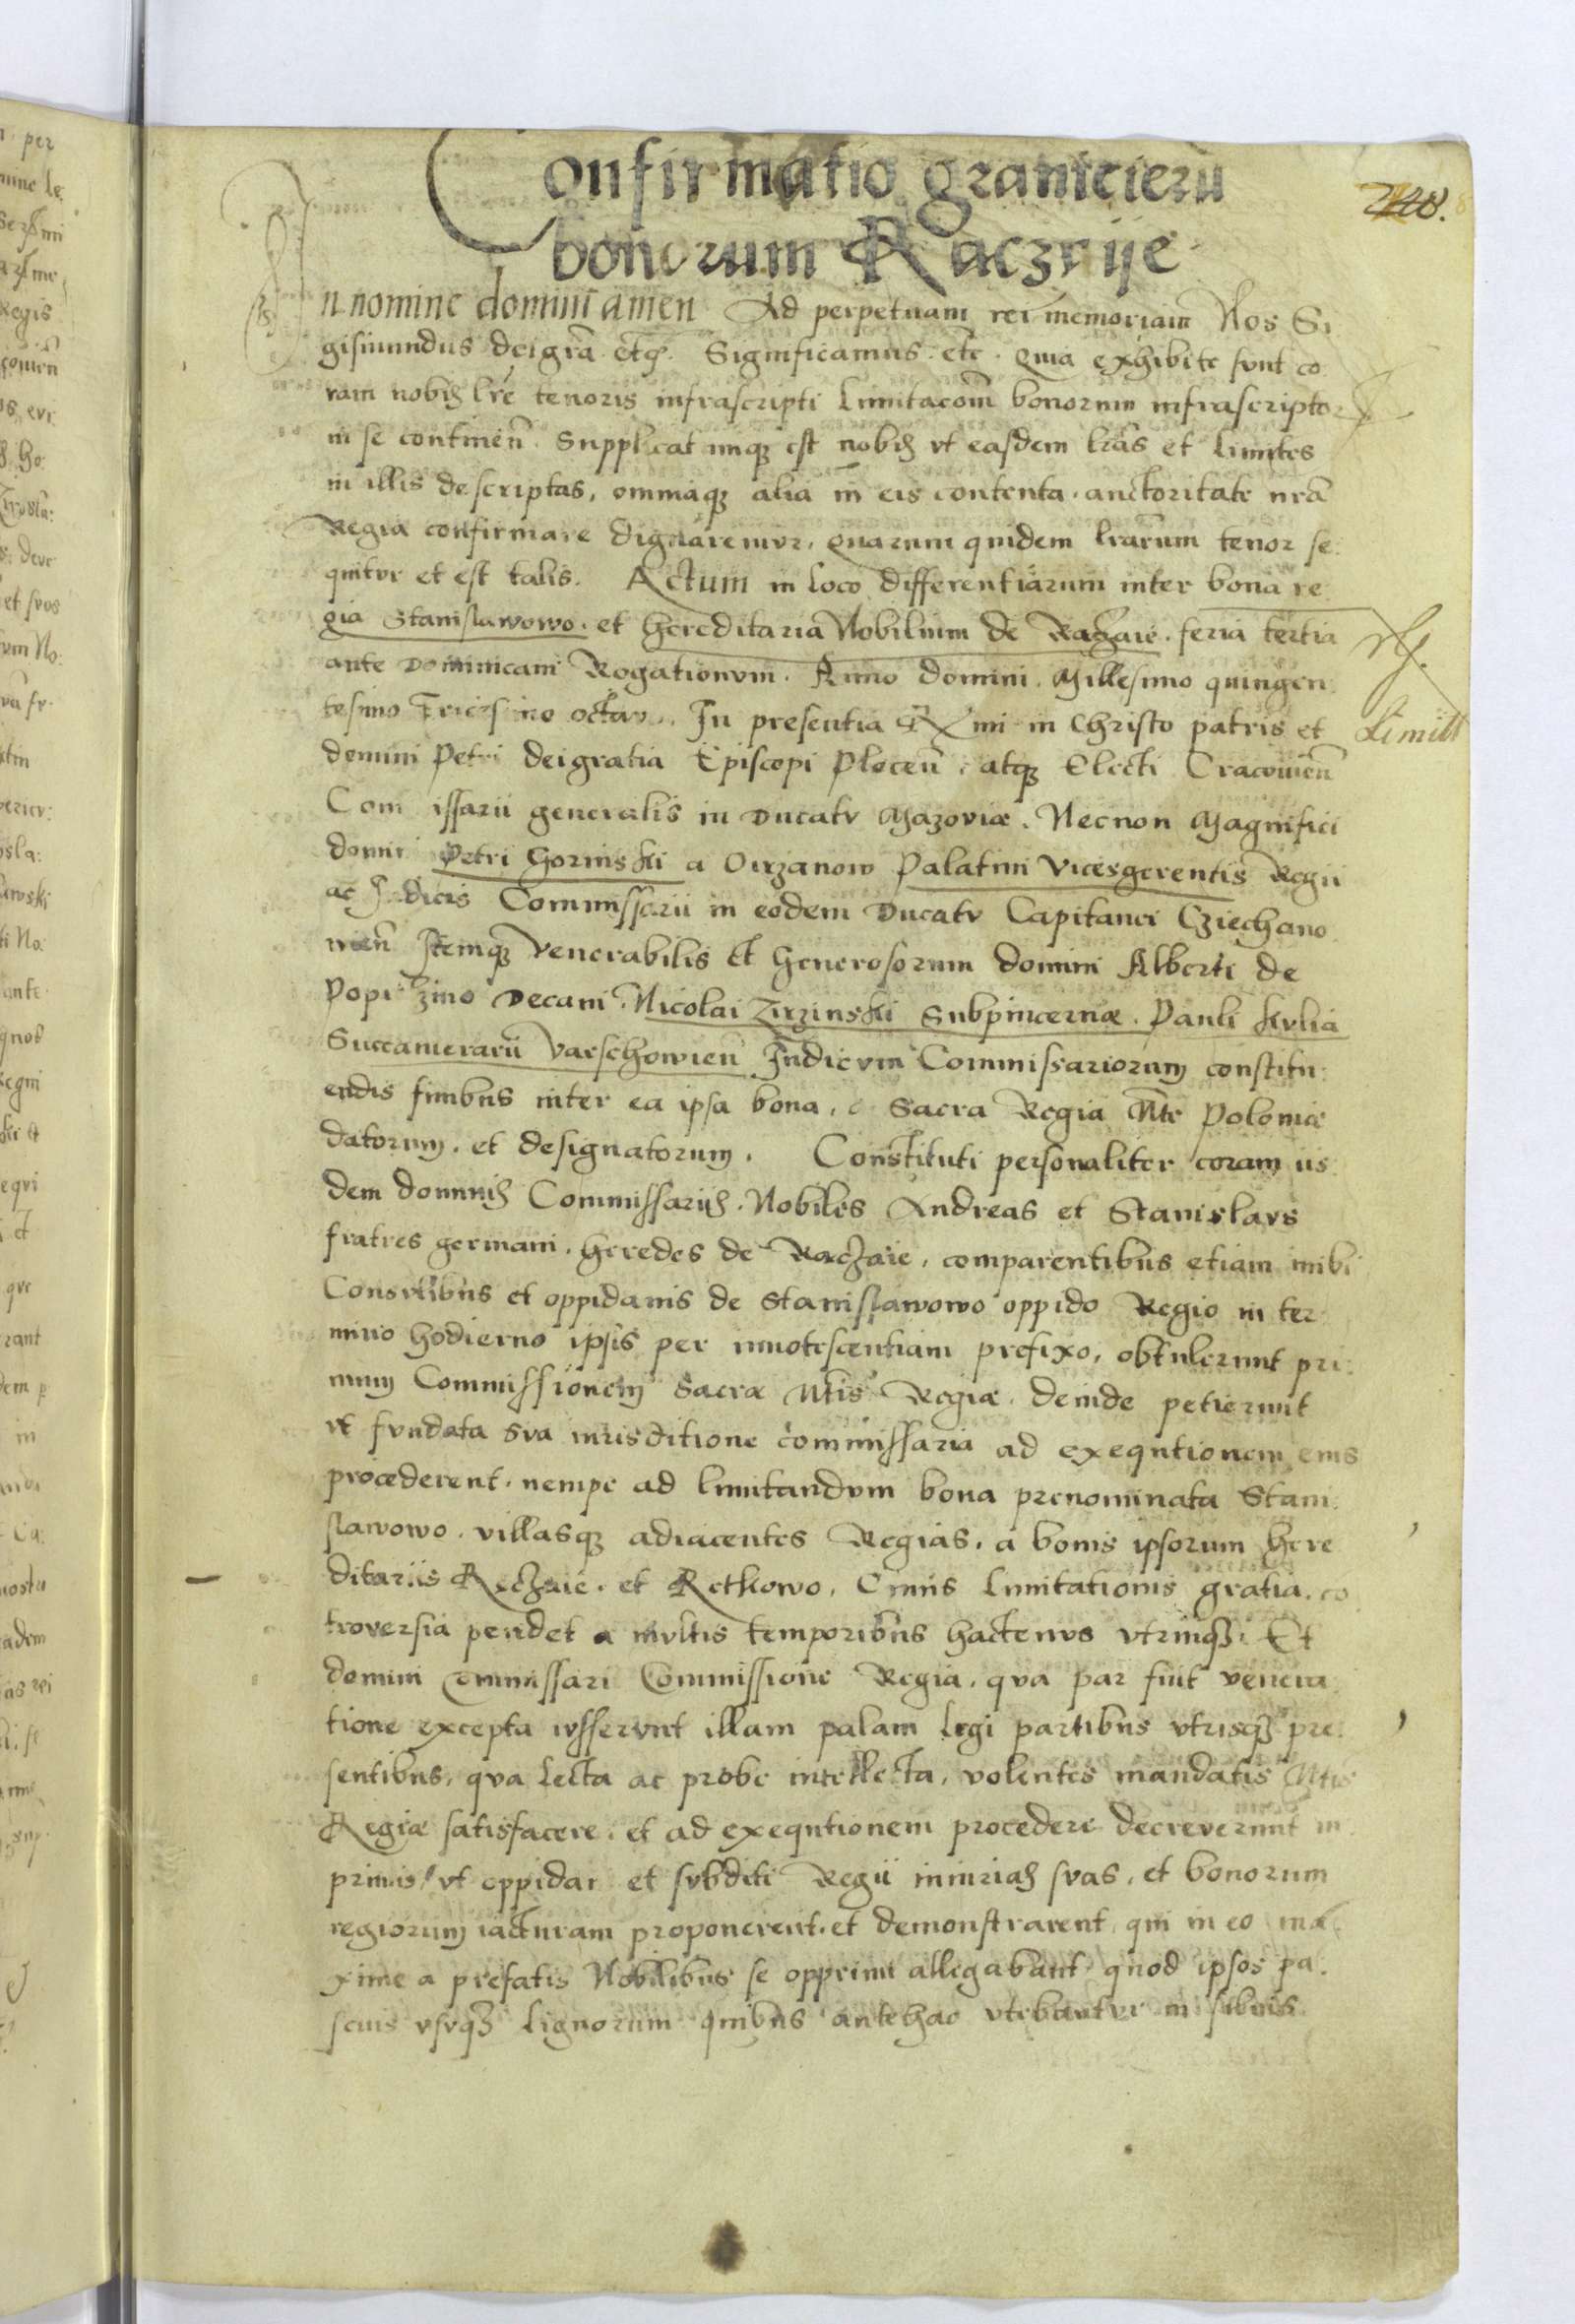 Confirmatio granicierũ
bonorum Raczaije
In nomine domini amen Ad perpetuam rei memoriam Nos Si
gismundus dei grã etc. Significamus etc. Quia exhibite sunt co
ram nobis lr̃e tenoris infrascripti limitacom̃ bonorum infrascriptor
in se continen̄ Supplicatumq₃ est nobis vt easdem lr̃as et limites
in illis descriptas, omniaq₃ alia in eis contenta auctoritate nr̃a
Regia confirmare dignaremvr, quarum quidem lr̃arum tenor se
quitvr et est talis. Actum in loco differentiarum inter bona re
gia Stanislawowo. et hereditaria Nobilium de Raczaie. feria tertia
ante Dominicam Rogationvm. Anno domini Millesimo quingen
tesimo Tricesimo octavo. In presentia Rmi in Christo patris et
Limitt
domini Petri dei gratia Episcopi Plocen̄ atq₃ Electi Cracovien̄
Commissarii generalis in Ducatv Mazoviæ. Necnon Magnifici
domini Petri Gorinski a Oirzanow Palatini Vicesgerentis Regii
ac Iudicis Commissarii in eodem Ducatv Capitanei Cziechano
wien̄ Itemq₃ Venerabilis et Generosorum domini Alberti de
Popi zino Decani. Nicolai Zirzinski Subpincernæ. Pauli Kvlia
Succamerarii Varschowien̄ Iudicvm Commissariorum constitu
endis finibus inter ea ipsa bona, a Sacra Regia Mte Poloniæ
datorum. et designatorum. Constituti personaliter coram iis
dem dominis Commissariis. Nobiles Andreas et Stanislavs
fratres germani. heredes de Raczaie, comparentibus etiam inibi
Consvlibus et oppidanis de Stanislawowo oppido Regio in ter
mino hodierno ipsis per innotescentiam prefixo, obtulerunt pri
mum Commissionem Sacræ Mtis Regiæ. deinde petierunt
vt fvndata sva iurisditione commissaria ad exequtionem eius
procederent. nempe ad limitandvm bona prenominata Stani
slawowo. villasq₃ adiacentes Regias. a bonis ipsorum here
ditariis Reczaie. et Retkowo. Cuius limitationis gratia. co
troversia pendet a mvltis temporibus hactenvs vtrinq₃. Et
domini Commissari Commissione Regia. qva par fuit venera
tione excepta ivsservnt illam palam legi partibus vtrisq₃ pre
sentibus, qva lecta ac probe intellecta, volentes mandatis Mtis
Regiæ satisfacere. et ad exequtionem procedere decreverunt in
primis vt oppidani et svbditi Regii iniurias svas, et bonorum
regiorum iacturam proponerent. et demonstrarent, qui in eo ma
xime a prefatis Nobilibus se opprimi allegabant quod ipsos pa
scuis vsvq₃ lignorum quibus antehac vtebantvr in silvis